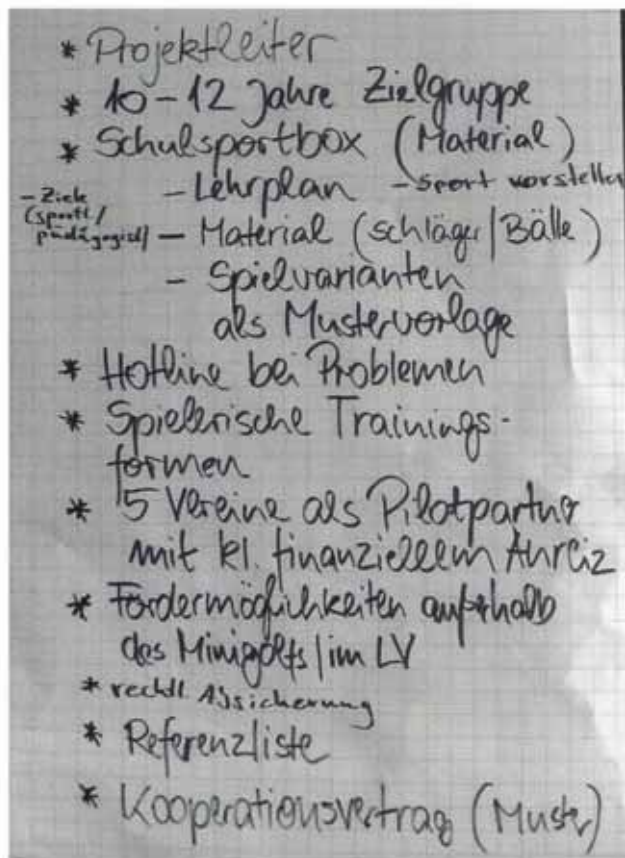 * Projektleiter
* 10-12 Jahre Zielgruppe
* Schulsportbox (Material)
- Lehrplan - Sport vorstellen
- Ziele
(sportl/
pädagogisch)
- Material (Schläger/Bälle)
- Spielvarianten
als Mustervorlage
* Hotline bei Problemen
* Spielerische Trainings-
formen
* 5 Vereine als Pilotpartner
mit kl. finanziellem Anreiz
* Fördermöglichkeiten außerhalb
des Minigolfs/im LV
* rechtl Absicherung
* Referenzliste
* Kooperationsvertrag (Muster)